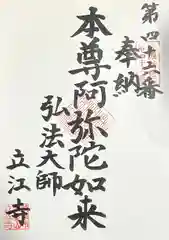 第四十二番
奉納
本尊阿弥陀如来
弘法大師
立江寺